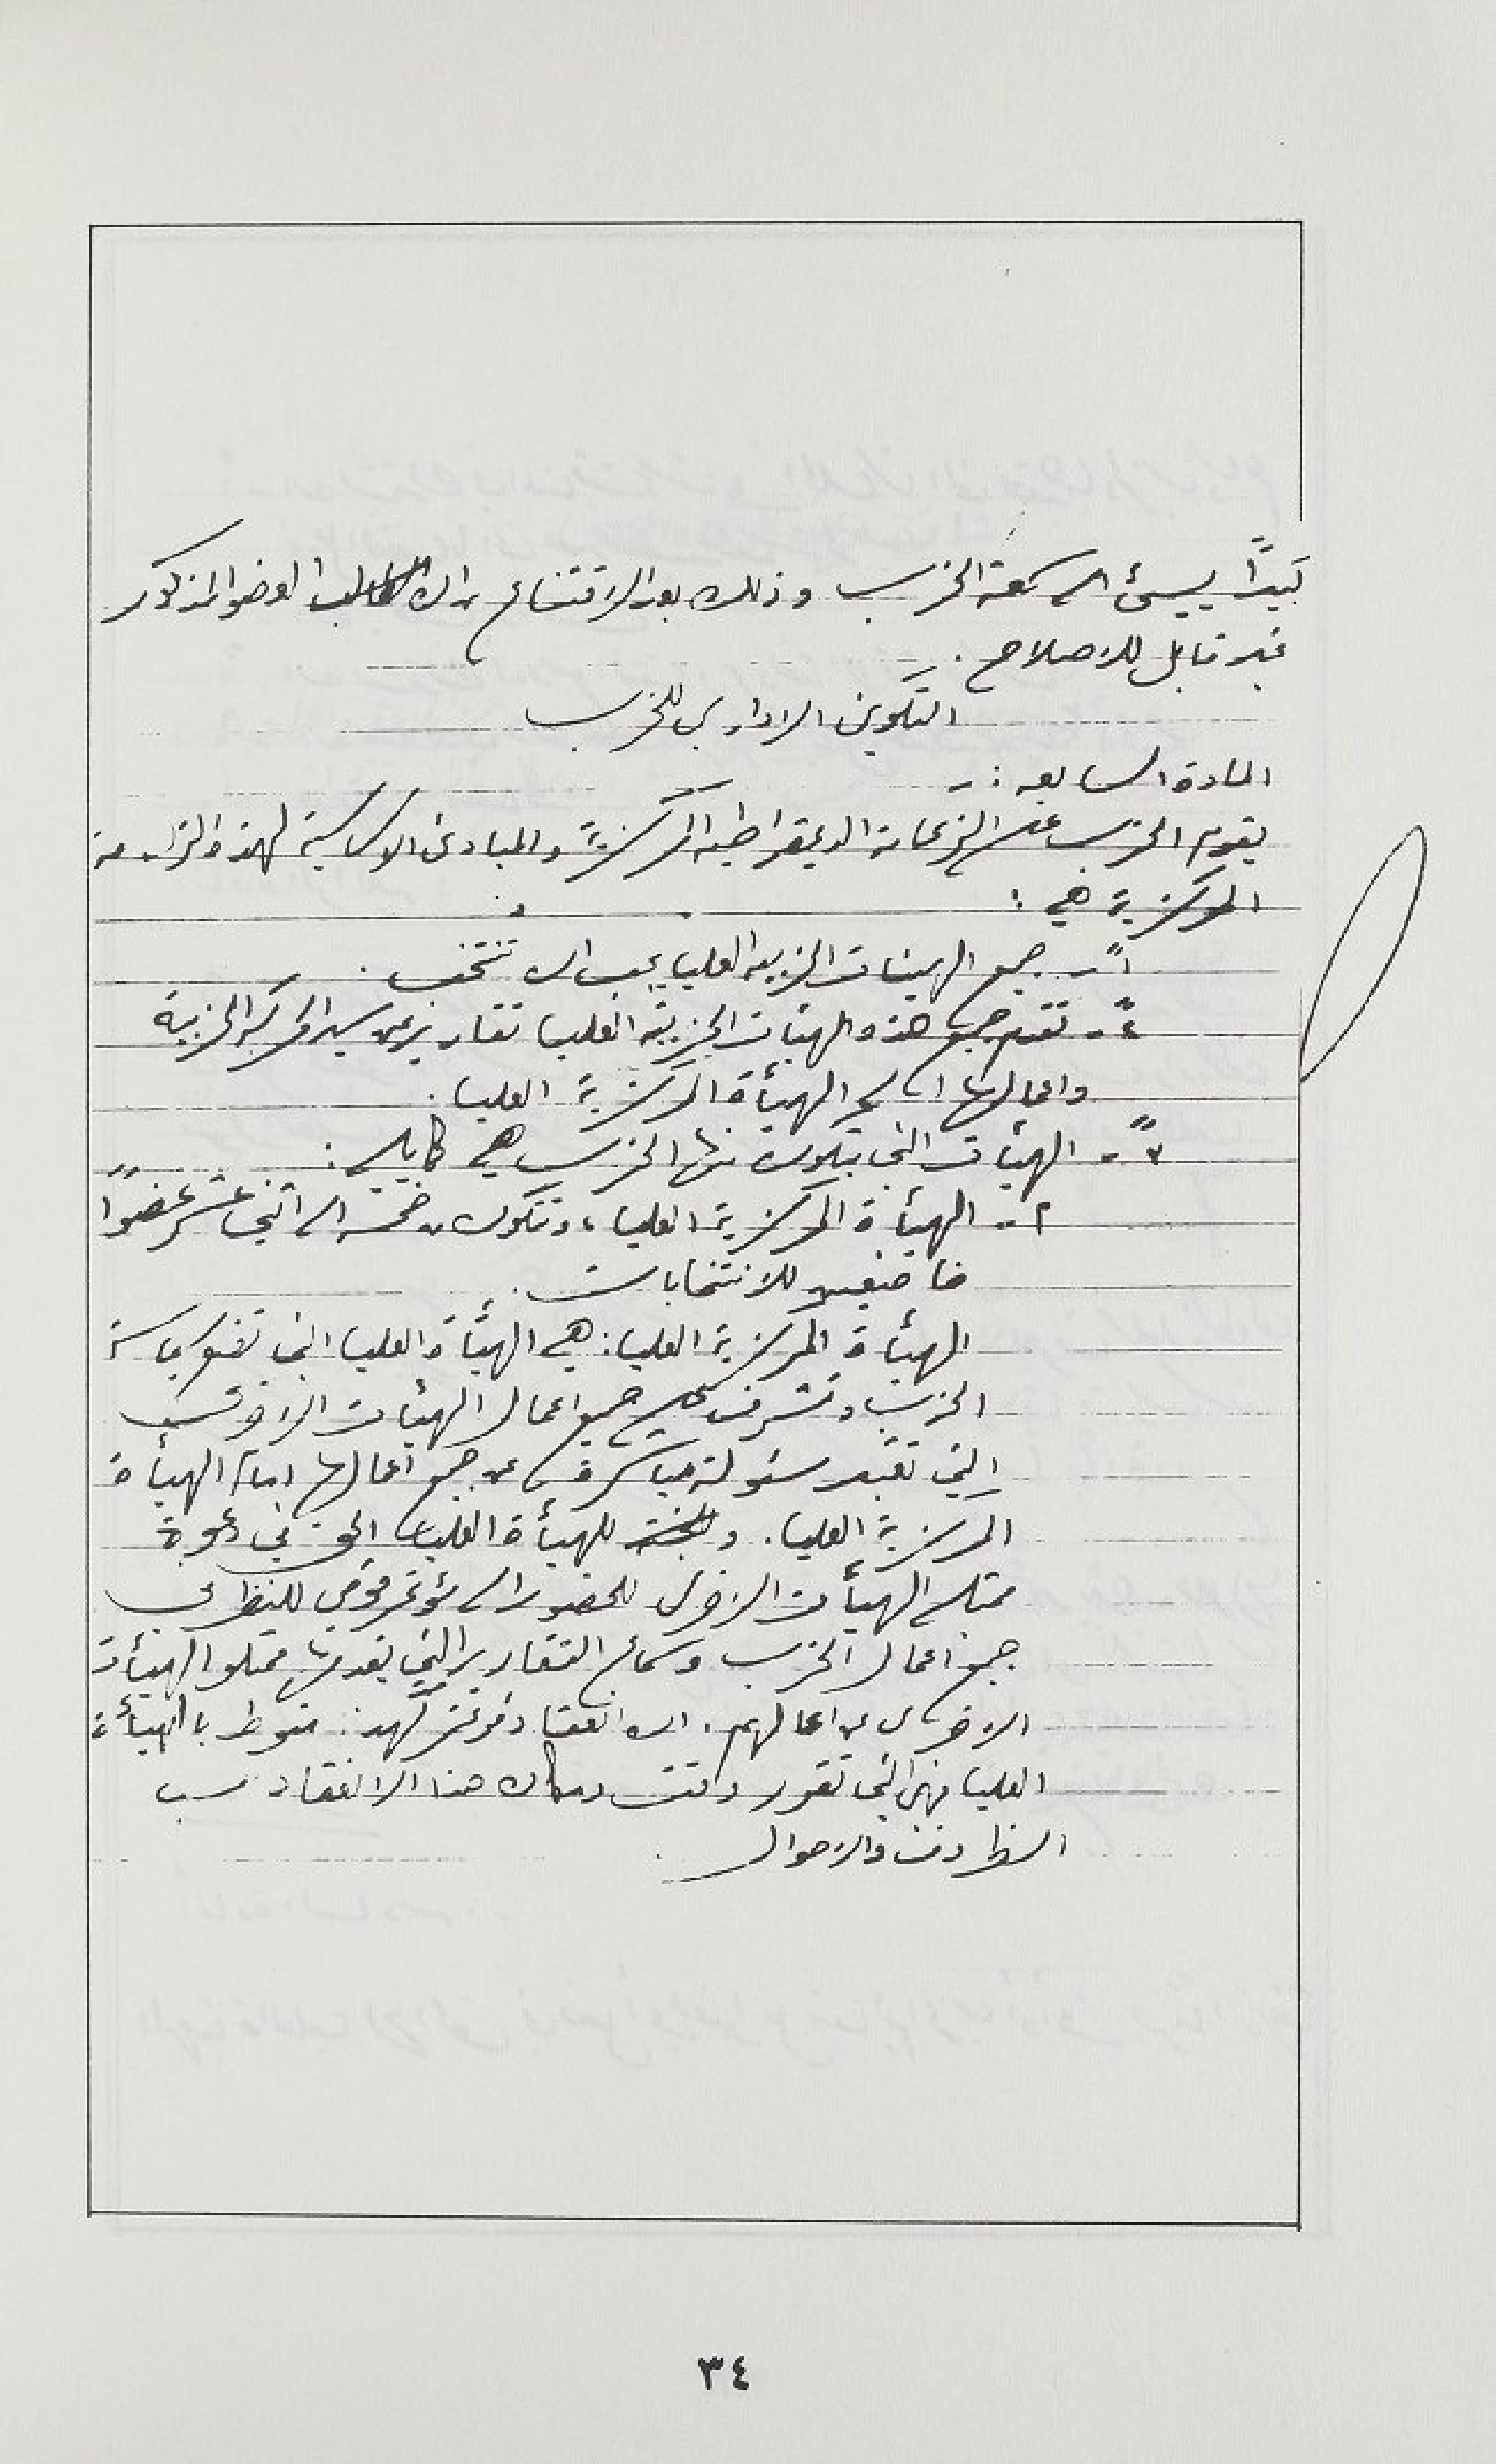 يسئ الى سمعة الحزب وذلك بعد الاقتناع بان العضو المذكور
غير قابل للاصلاح .
التكوين الاداري للحزب
المادة السابعه :-
يقوم الحزب على الزعامة الديمقراطيه المركزية والمبادئ الاساسية لهذه الزعامة
المركزية هي :
١ - جميع الهيئات الحزبيه العليا يجب ان تنتخب .
٢ - تقدم جميع هذه الهيئات الحزبية العليا تقارير عن سير الحركة الحزبية
واعمالها الى الهيأة المركزية العليا .
٣ - الهيئات التي يتكون منها الحزب هي كما يلي :
أ - الهيأة المركزية العليا ، وتتكون من خمسه الى اثني عشر عضوًا
خاضعين للانتخابات .
الهيأة المركزية العليا : هي الهيأة العليا التي تضع سياسة
الحزب وتشرف على جميع اعمال الهيئات الاخرى
التي تعتبر مسئولة مباشرة عن جميع اعمالها امام الهيأة
المركزية العليا . وللهيأة العليا الحق في دعوة
ممثلي الهيئات الاخرى للحضور الى مؤتمر للنظر في
جميع اعمال الحزب وسماع التقارير التي يقدمها ممثلوا الهيئات
الاخرى عن اعمالهم . ان انعقاد مؤتمر كهذا منوط بالهيأة
العليا فهي التي تقرر وقت ومكان هذا الانعقاد حسب
الظروف والاحوال .
٣٤